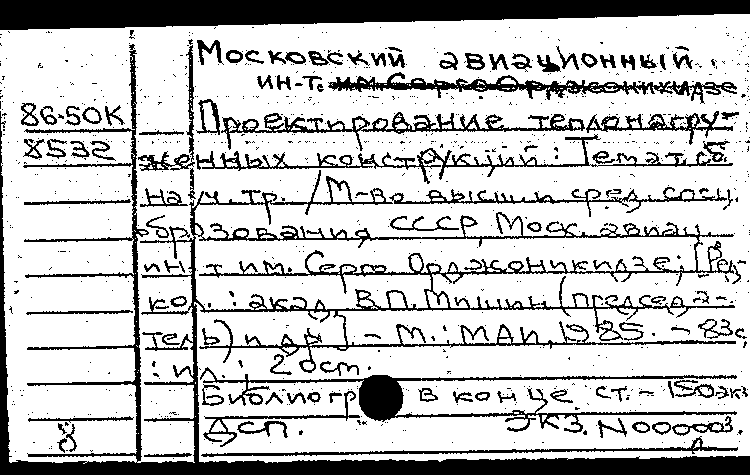 Московский авиационный
ин-т. им. Серго Орджоникидзе.
86-50К Проектирование теплонагру-
8532 женных конструкций : Темат. сб.
науч. тр. / М-во высш. и сред. спец.
образования СССР, Моск. авиац.
ин-т им. Серго Орджоникидзе; [Ред-
кол. : акад. В.П. Мишин (председа-
тель) и др]. - М. : МАИ, 1985. - 83с,
: ил. ; 20см.
Библиогр в конце ст. - 150экз
ДСП. Экз. N000003.